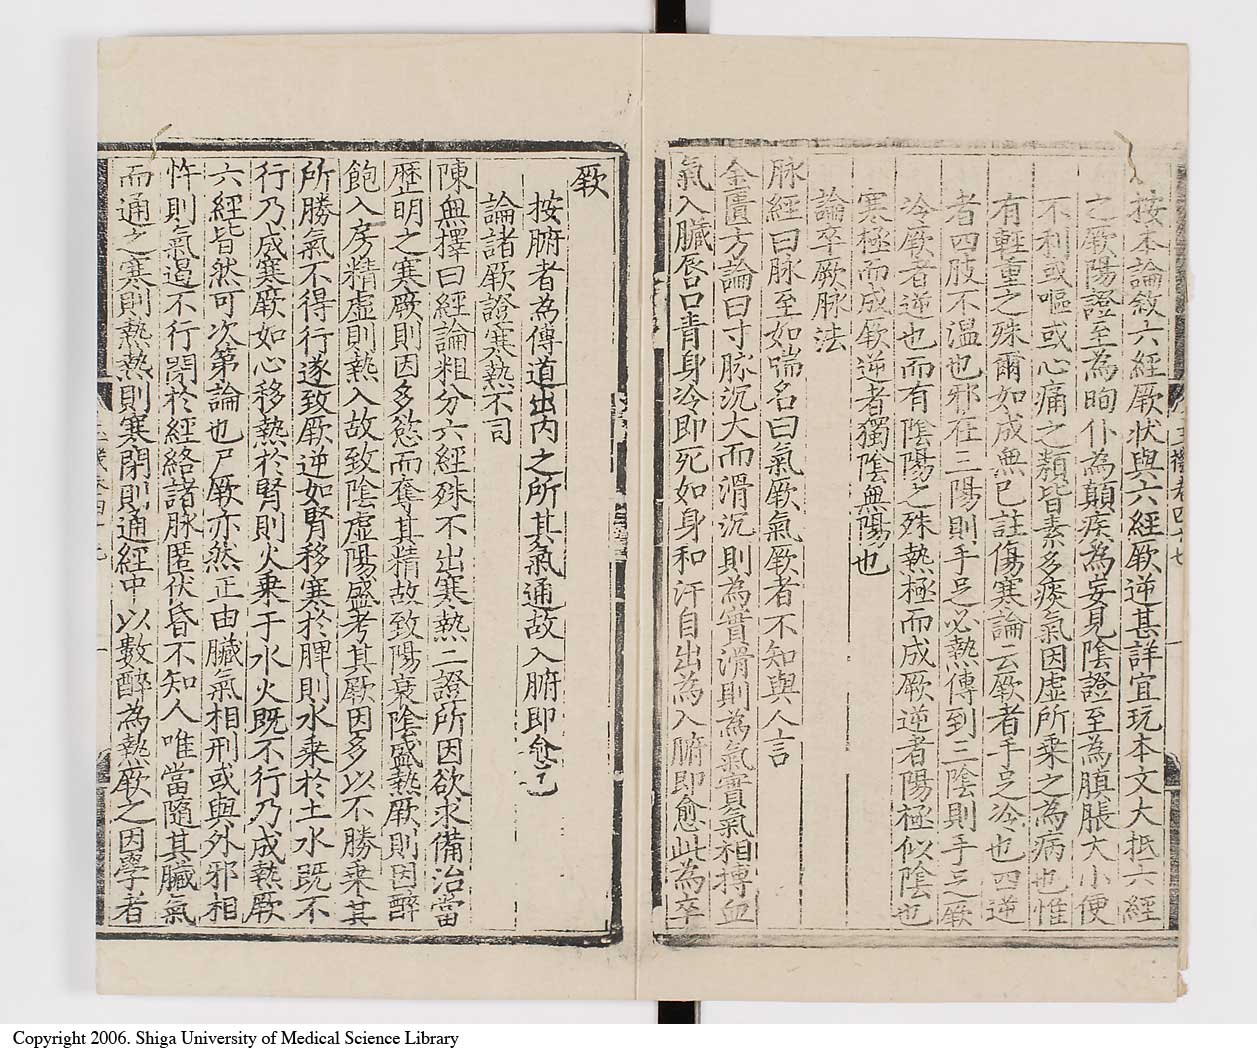 按本論敘六經厥状與六經厥逆甚詳宜玩本文大抵六經
之厥陽證至為眴仆為顛疾為妄見陰證至為䐜脹大小便
不利或嘔或心痛之類皆素多痰氣因虛所乘之為病也惟
有輕重之殊爾如成無已註傷寒論云厥者手足冷也四逆
者四肢不溫也邪在三陽則手足必熱傳到三陰則手足厥
冷厥者逆也而有陰陽之殊熱極而成厥逆者陽極似陰也
寒極而成厥逆者獨陰無陽也
論卒厥脉法
脉經曰脉至如喘名曰氣厥氣厥者不知與人言
金匱方論曰寸脉沉大而滑沉則為實滑則為氣實氣相摶血
氣入臟唇口青身冷即死如身和汗自出為入腑即愈此為卒
厥
按腑者為傳道出內之所其氣通故入腑即愈也
論諸厥證寒熱不同
陳無擇曰經論粗分六經殊不出寒熱二證所因欲求備治當
歷明之寒厥則因多慾而奪其精故致陽衰陰盛熱厥則因醉
飽入房精虛則熱入故致陰虛陽盛考其厥因多以不勝乘其
所勝氣不得行遂致厥逆如腎移寒於脾則水乘於土水既不
行乃成寒厥如心移熱於腎則火乘于水火既不行乃成熱厥
六經皆然可次第論也尸厥亦然正由臟氣相刑或與外邪相
忤則氣遏不行閉於經絡諸脉匿伏昏不知人唯當隨其臟氣
而通之寒則熱熱則寒閉則通經中以數醉為熱厥之因學者
Copyright 2006. Shiga University of Medical Science Library